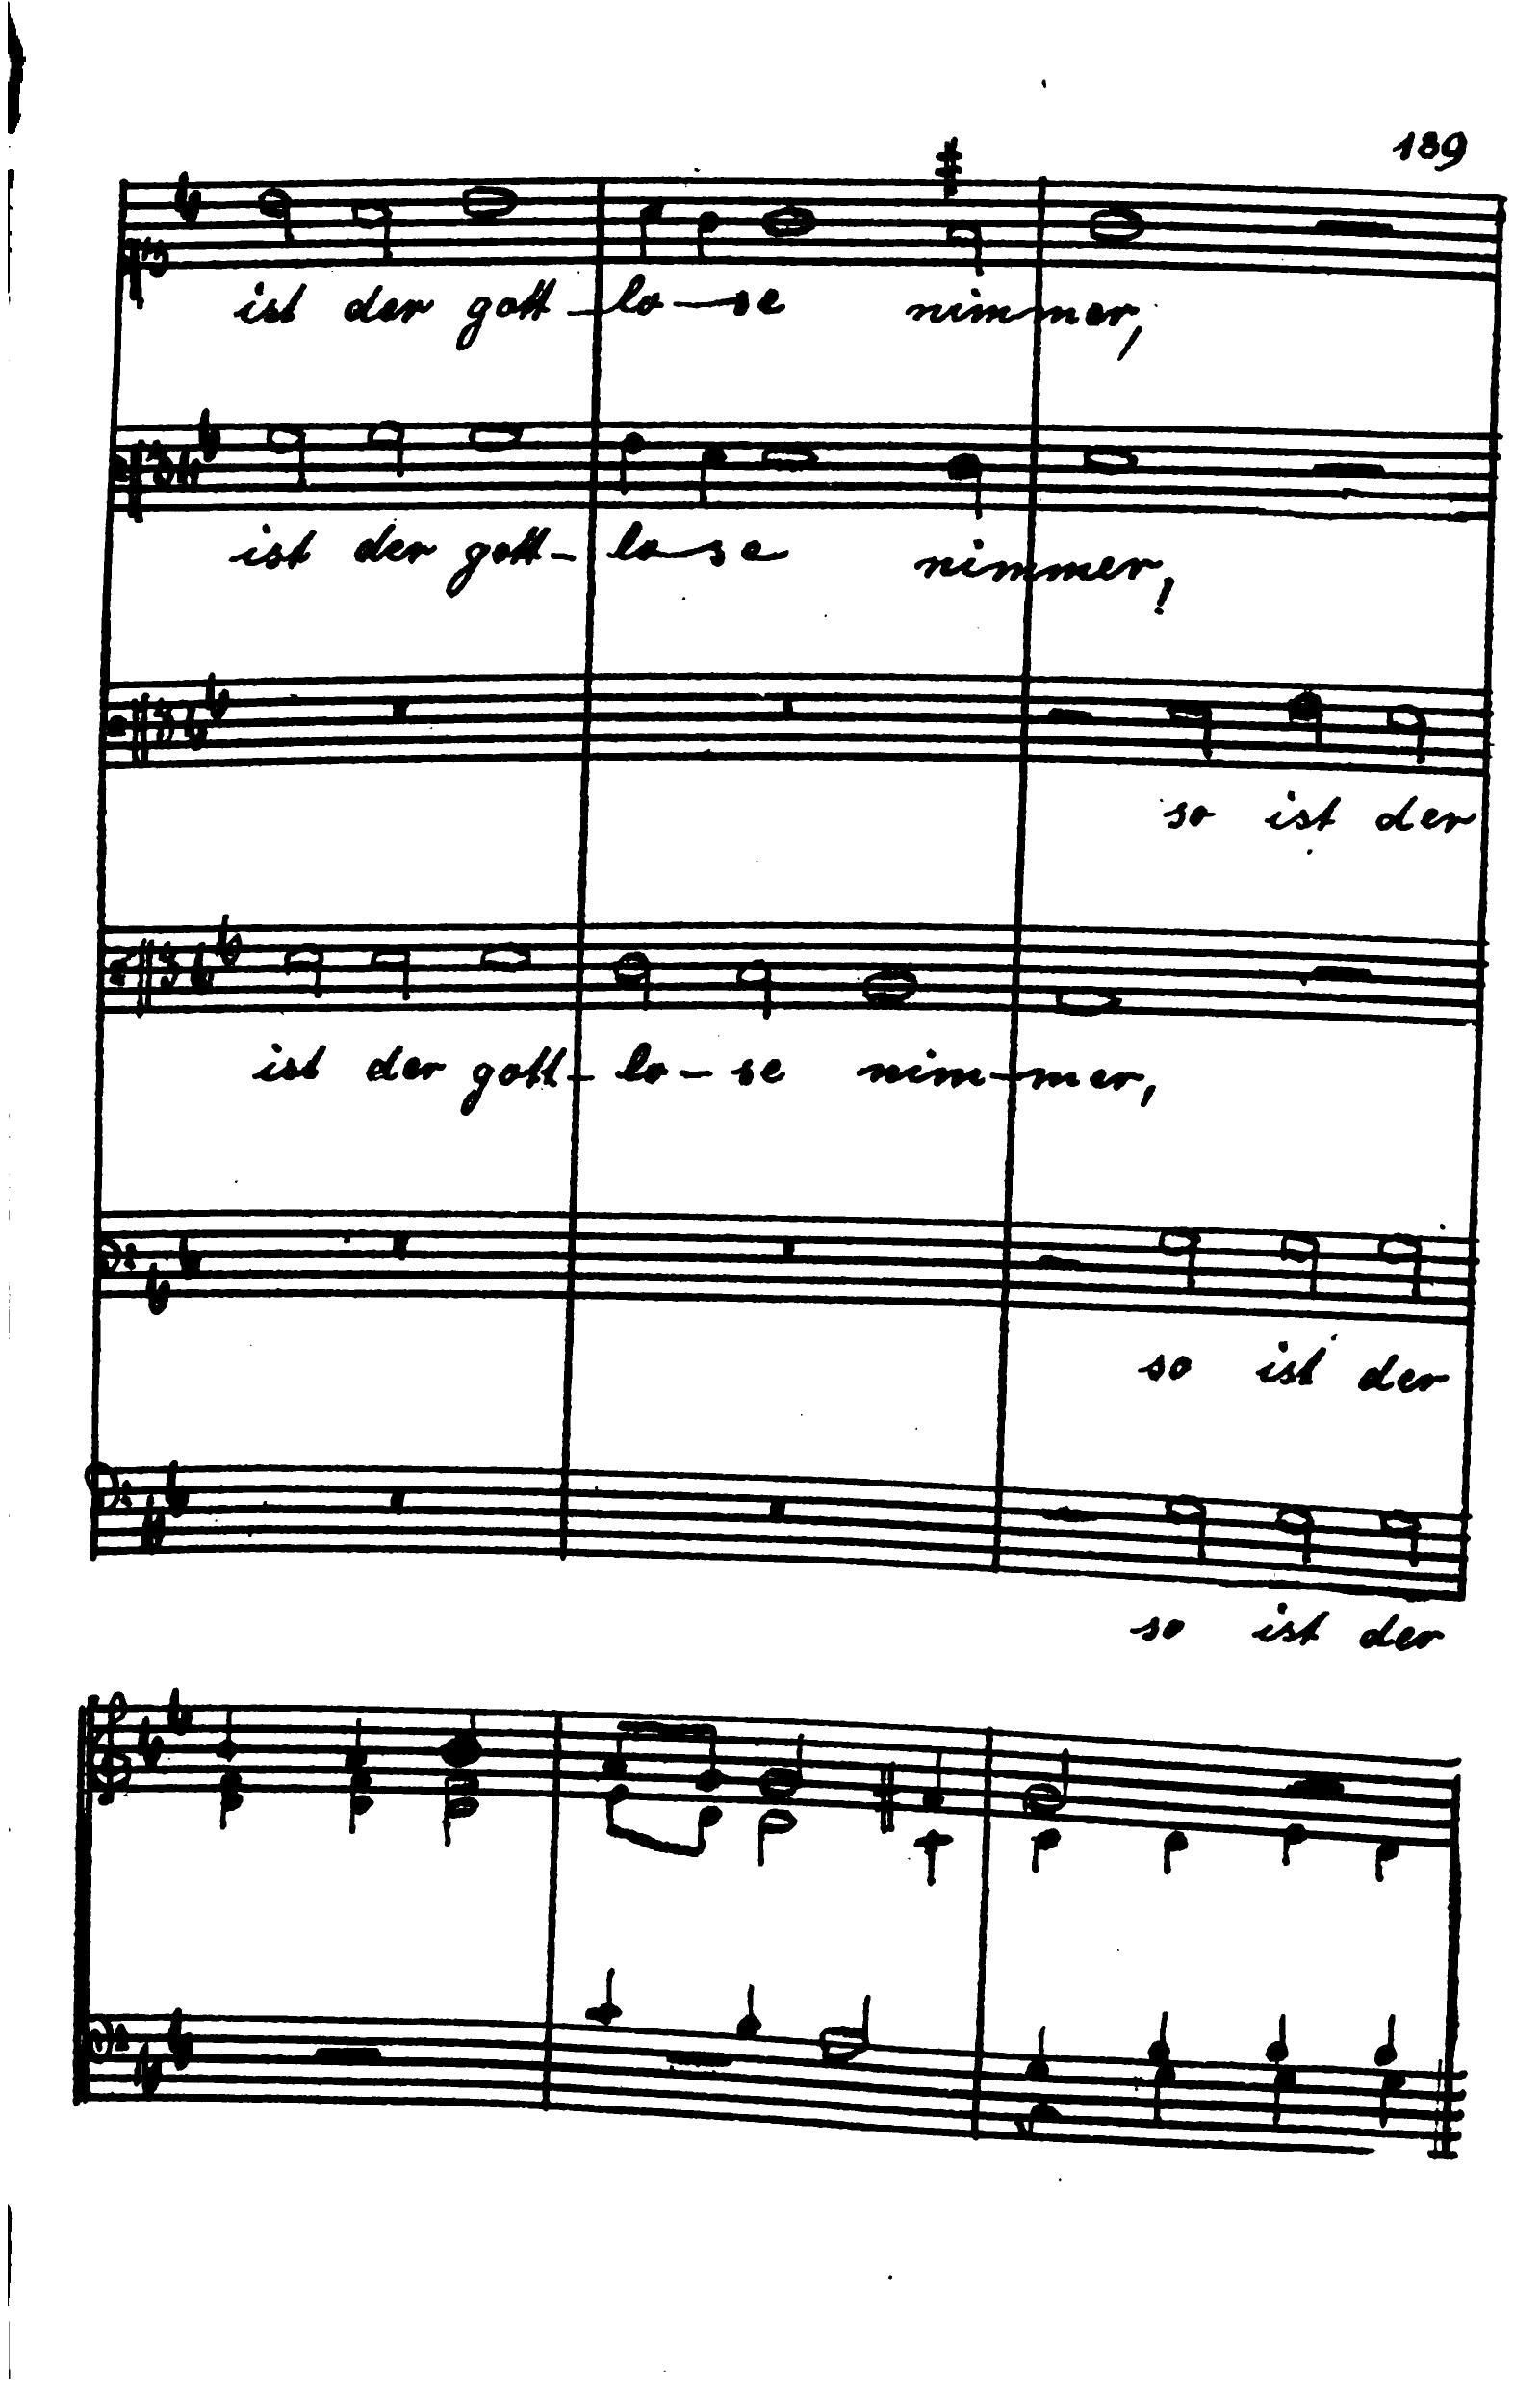 189
ist der gott-lo-se nimmer,
ist der gott-lo-se nimmer,
so ist der
ist der gott-lo-se nim-mer,
so ist der
so ist der